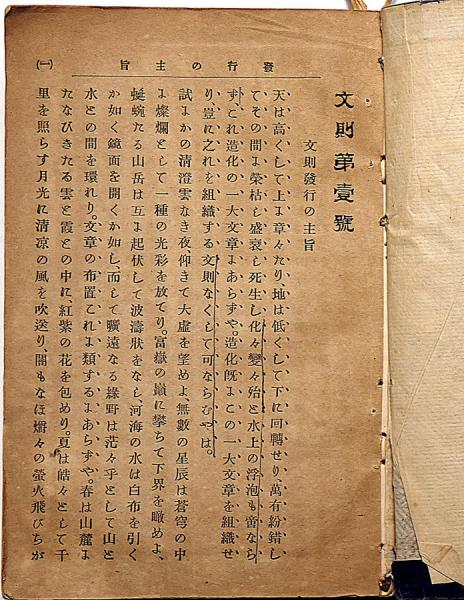 發行の主旨
(一)
文則第壹號
文則發行の主旨
天は高くして上ま章々たり、地は低くして下に回轉せり萬有紛錯し
てその間ま榮枯し盛衰し死生し化々變々殆ど水上の浮泡も啻なら
ず、これ造化の一大文章まあらずや。造化既まこの一大文章を組織せ
り、豈に之れを組織する文則なくして可ならむやは。
試まかの清澄雲なき夜、仰きて大虛を望めよ、無數の星辰は蒼穹の中
ま燦爛として一種の光彩を放てり。富嶽の巓に攀ちて下界を瞰めよ、
蜿蜒たる山岳は互ま起伏して波濤狀をなし河海の水は白布を引く
か如く鏡面を開くか如し、而して曠遠なる綠野は茫々乎として山と
水との間を環れり。文章の布置これま類するまあらずや。春は山麓ま
たなびきたる雲と霞との中に、紅紫の花を包めり。夏は皓々として千
里を照らす月光に清凉の風を吹送り、闇もなほ熠々の螢火飛びちが